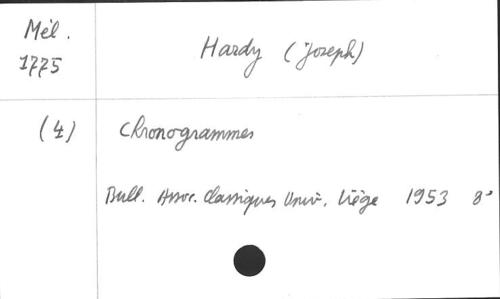 Mél.
1775
Hardy (Joseph)
(4) Chronogrammes
Bull. Assoc. Classiques Univ. Liège 1953 8°